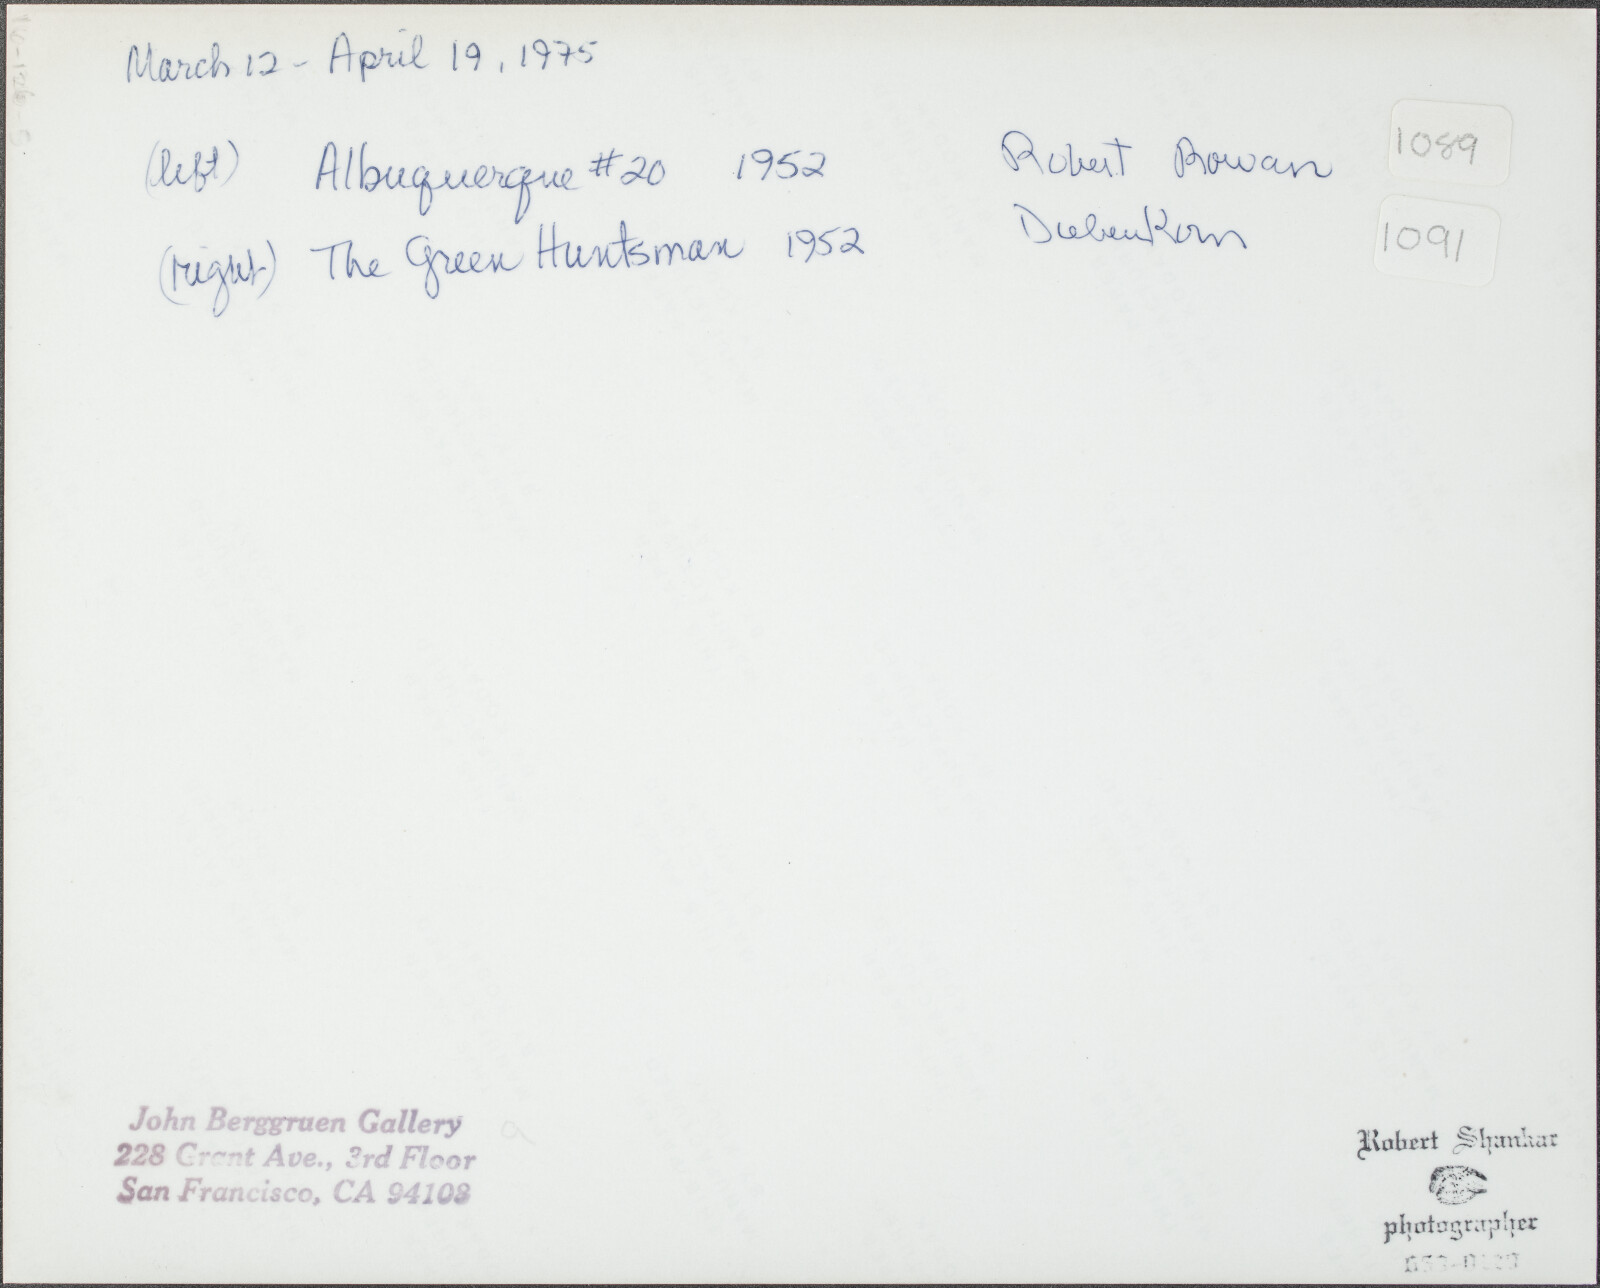 March 12 - April 19, 1975
(left) Albuquerque #20 1952 Robert Rowan 1089
(right) The Green Huntsman 1952 Diebenkorn 1091
John Berggruen Gallery
228 Grant Ave., 3rd Floor
San Francisco, CA 94108
Robert Shankar
photographer